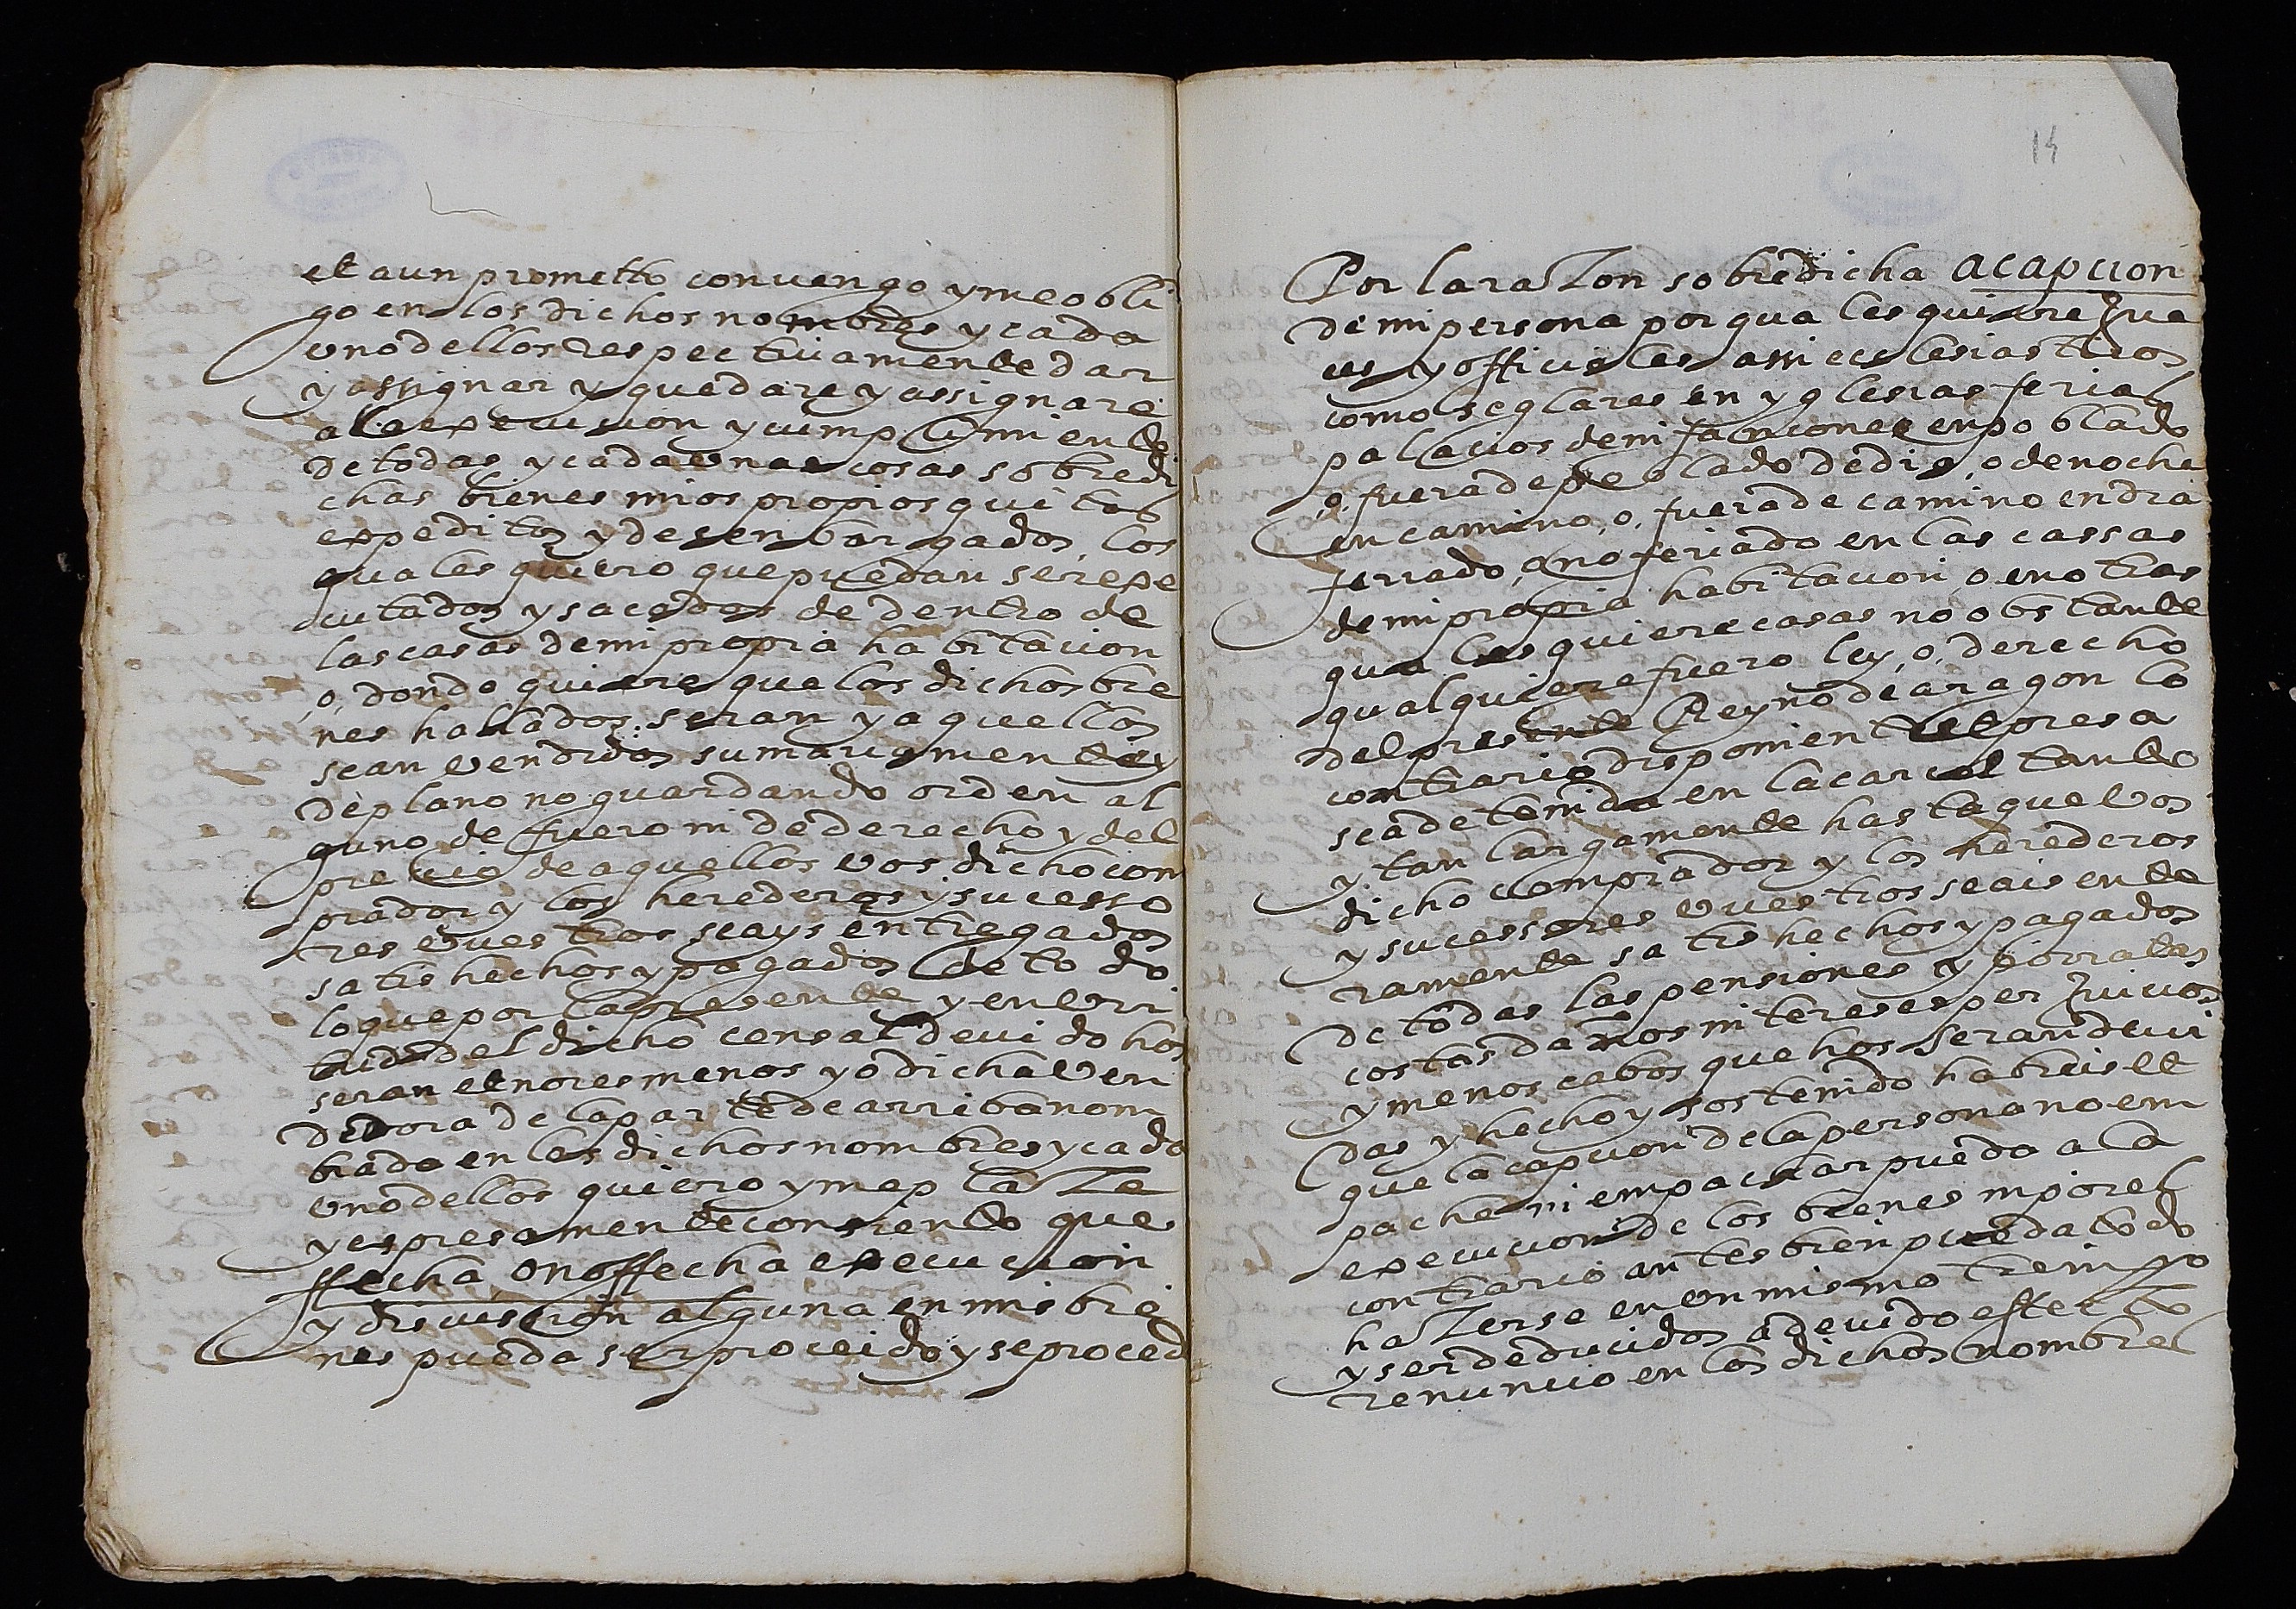 et aun prometto convengo y me obli
go en los dichos nombres y cada
uno dellos respectivamente dar
y assignar y que dare y assignare
a la execucion y cumplimiento
de todas y cada unas cosas sobredi
chas bienes mios propios quitos
expeditos y desenbargados, los
quales quiero que puedan ser exe
cutados y sacados de dentro de
las casas de mi propria habitacion
o, donde quiere que los dichos bie
nes hallados seran y aquellos
sean vendidos sumariamente y
de plano no guardando orden al
guno de fuero ni de derecho y del
precio de aquellos vos dicho com
prador y los herederos y sucesso
res vuestros seays entregados
satishechos y pagados de todo
lo que por la presente y en vir
tud del dicho censal devido hos
seran et no res menos yo dicha ven
dedora de la parte de arriba nom
brada en los dichos nombres y cada
uno dellos quiero y me plaze
y espresamente consiento que
ffecha, o no ffecha execucion
y discusion alguna en mis bie
nes pueda ser proceido y se proced
14
Por la razon sobredicha a capcion
de mi persona por quales quiere Jue
ces y officiales assi ecclesiasticos
como seglares en yglesias ferias
palacios de infanciones en poblado
o, fuera de poblado de dia, o de noche
en camino, o, fuera de camino en dia
feriado, o no feriado en las cassas
de mi propia habitacion o en otras
quales quiere casas no obstante
qualquiere fuero ley, o, derecho
del presente Reyno de aragon lo
contrario disponient et presa
sea detenida en la carcel tanto
y tan largamente hasta que vos
dicho comprador y los herederos
y sucessores vuestros seais ente
ramente satishechos y pagados
de todas las pensiones y porratas
costas daños intereses perJuicios
y menos cabos que hos seran devi
das y hecho y sostenido habreis et
que la capcion de la persona no em
pache ni empachar pueda a la
execucion de los bienes ni por el
contrario antes bien pueda todo
hazerse en un mismo tiempo
y ser deducidos a devido effecto
renuncio en los dichos nombres